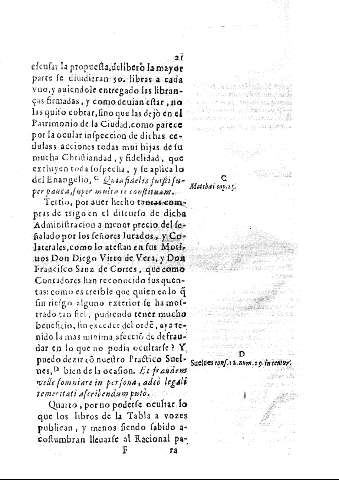 21
escusar la propuesta, deliberò la mayor
parte se diuidieran 50. libras a cada
vno, y auiendole entregado las libran-
ças firmadas, y como deuian estar, no
las quiso cobrar, sino que las dejò en el
Patrimonio de la Ciudad, como parece
por la ocular inspeccion de dichas ce-
dulass acciones todas mui hijas de su
mucha Christiandad, y fidelidad, que
excluyen toda sospecha, y se aplica lo
del Euangelio, C Quia fidelis fuisti su-
per pauca, super multa te constituam.
C
Matthai cap. 25.
Tertio, por auer hecho tantas com-
pras de trigo en el discurso de dicha
Administracion a menor precio del se-
ñalado por los señores Iurados, y Co-
laterales, como lo atestan en sus Moti-
uos Don Diego Virto de Vera, y Don
Francisco Sanz de Cortes, que como
Contadores han reconocido sus quen-
tas: como es creible que quien en lo q̃
sin riesgo alguno exterior se ha mos-
trado tan fiel, pudiendo tener mucho
beneficio, sin exceder del ordẽ, aya te-
nido la mas minima afecciõ de defrau-
dar en lo que no podia ocultarse? Y
puedo dezir cõ nuestro Practico Suel-
ues, D bien de la ocasion. Et fraudem
vede somniare in persona, adeò legali
temeritati ascribendum putò.
D
Suelues cons. 12. num. 29. in centur.
Quarto, por no poderse ocultar lo
que los libros de la Tabla a vozes
publican, y menos siendo sabido a-
costumbran lleuarse al Racional pa-
F ra